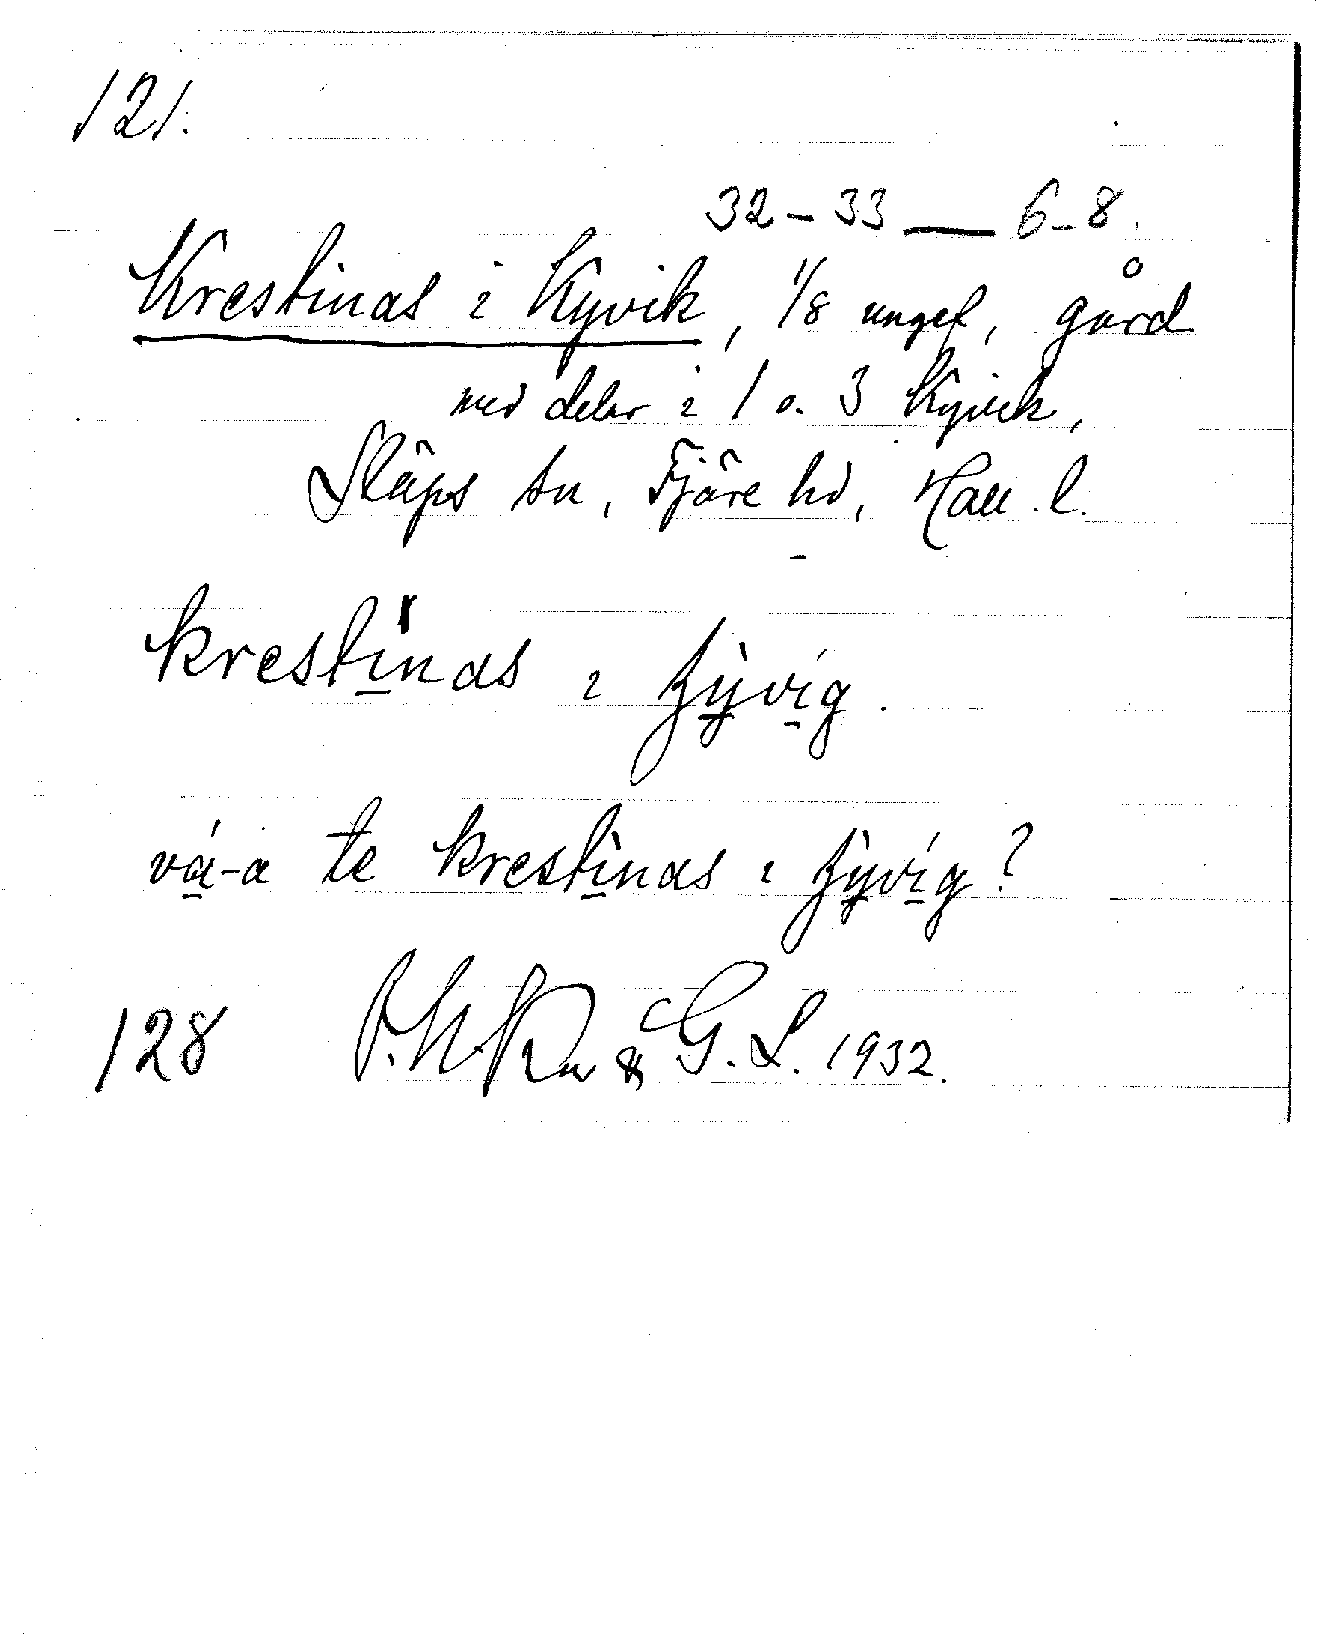 121.
32-33 — 6-8.
Krestinas i Kyvik, 1/8 unget, gård
med delar i 1 o. 3 Kyvik,
Släps sn, Fjäre hd, Hall. l.
krestinas i
vá-a te krestinas i
128 & G. L. 1932.